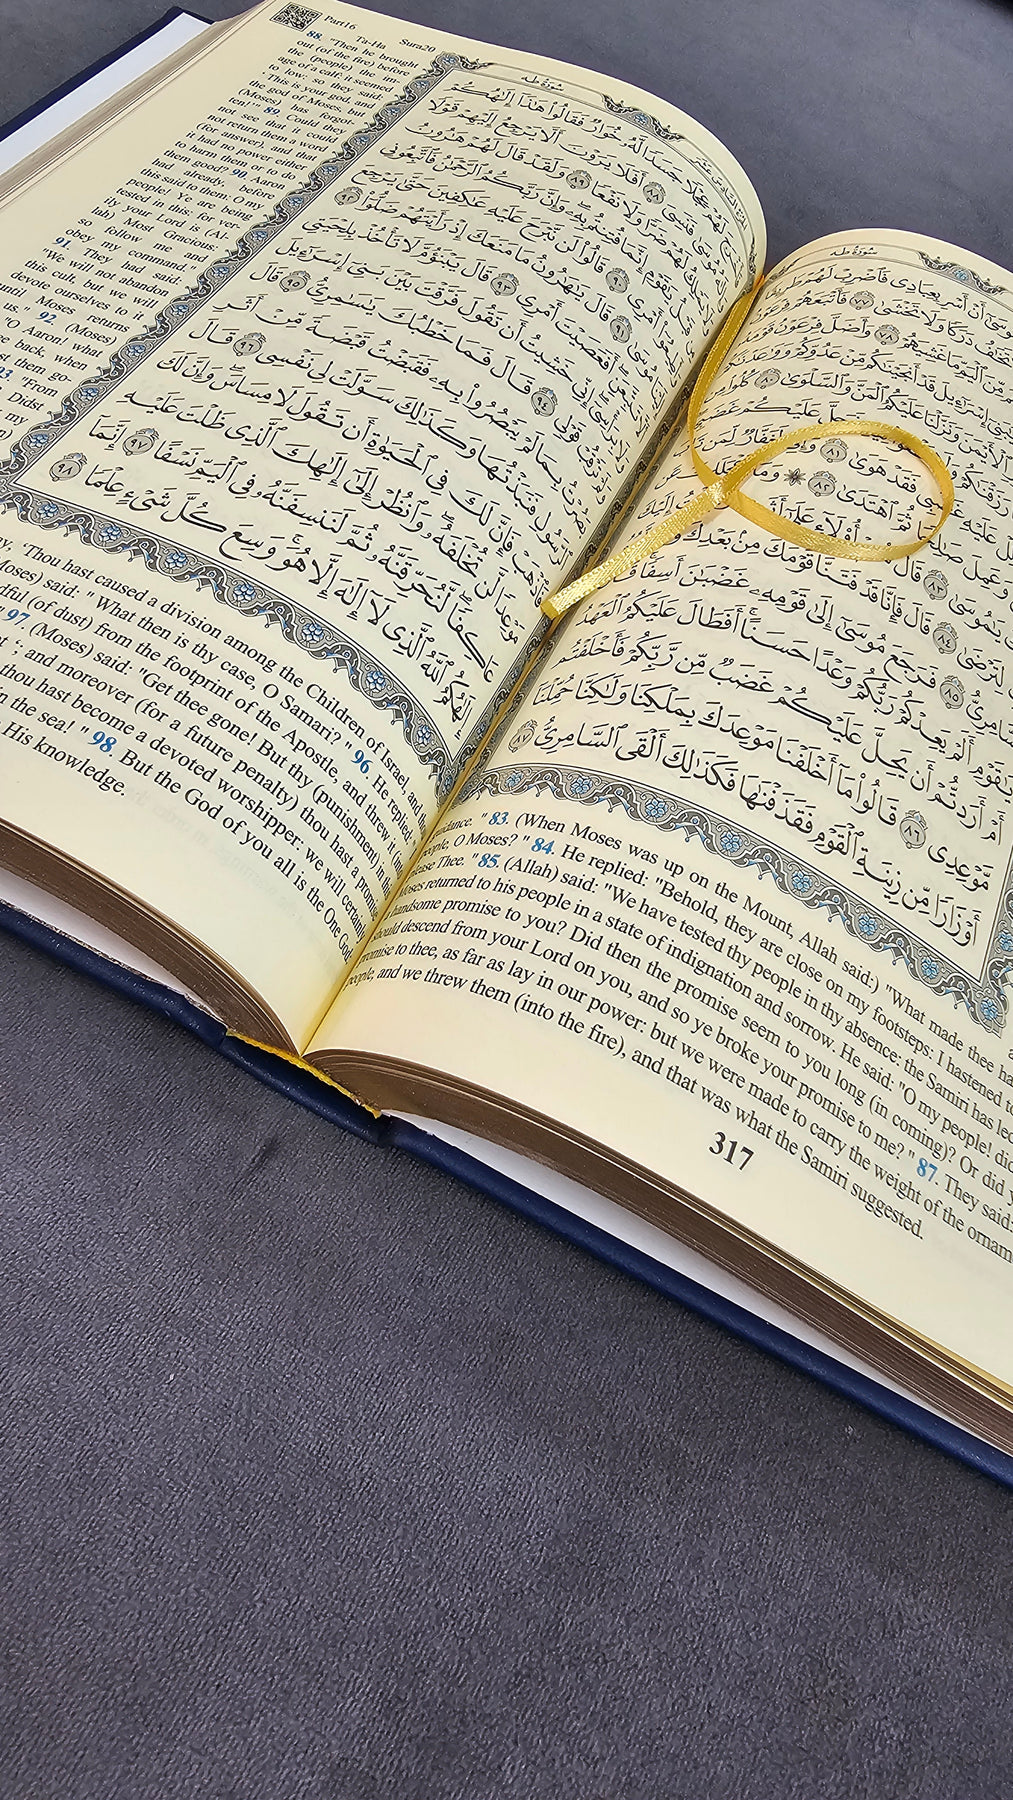 Part16 Ta-Ha Sura20
88. "Then he brought
out (of the fire) before
the (people) the im-
age of a calf: it seemed
to low: so they said:
This is your god, and
the god of Moses, but
(Moses) has forgot-
ten!" 89. Could they
not see that it could
not return them a word
(for answer), and that
it had no power either
to harm them or to do
them good? 90. Aaron
had already, before
this said to them: O my
people! Ye are being
tested in this: for ver-
ily your Lord is (Al-
lah) Most Gracious:
so follow me and
obey my command."
91. They had said:
"We will not abandon
this cult, but we will
devote ourselves to it
until Moses returns
us." 92. (Moses)
"O Aaron! what
back, when
them go-
93. "From
Didst
my
سُورَةُ طه
جَسَدًا لَّهُۥ خُوَارٌ فَقَالُوا۟ هَٰذَآ إِلَٰهُكُمْ
أَفَلَا يَرَوْنَ أَلَّا يَرْجِعُ إِلَيْهِمْ قَوْلًا
ضَرًّا وَلَا نَفْعًا ٨٩ وَلَقَدْ قَالَ لَهُمْ هَٰرُونُ
يَٰقَوْمِ إِنَّمَا فُتِنتُم بِهِۦ وَإِنَّ رَبَّكُمُ ٱلرَّحْمَٰنُ فَٱتَّبِعُونِى
٩٠ قَالُوا۟ لَن نَّبْرَحَ عَلَيْهِ عَٰكِفِينَ حَتَّىٰ يَرْجِعَ
٩١ قَالَ يَٰهَٰرُونُ مَا مَنَعَكَ إِذْ رَأَيْتَهُمْ ضَلُّوٓا۟ ٩٢
أَفَعَصَيْتَ أَمْرِى ٩٣ قَالَ يَبْنَؤُمَّ لَا تَأْخُذْ بِلِحْيَتِى
إِنِّى خَشِيتُ أَن تَقُولَ فَرَّقْتَ بَيْنَ بَنِىٓ إِسْرَٰٓءِيلَ
قَوْلِى ٩٤ قَالَ فَمَا خَطْبُكَ يَٰسَٰمِرِىُّ ٩٥ قَالَ
بِمَا لَمْ يَبْصُرُوا۟ بِهِۦ فَقَبَضْتُ قَبْضَةً مِّنْ أَثَرِ
ٱلرَّسُولِ فَنَبَذْتُهَا وَكَذَٰلِكَ سَوَّلَتْ لِى نَفْسِى ٩٦ قَالَ
فَٱذْهَبْ فَإِنَّ لَكَ فِى ٱلْحَيَوٰةِ أَن تَقُولَ لَا مِسَاسَ وَإِنَّ لَكَ
مَوْعِدًا لَّن تُخْلَفَهُۥ وَٱنظُرْ إِلَىٰٓ إِلَٰهِكَ ٱلَّذِى ظَلْتَ عَلَيْهِ
عَاكِفًا لَّنُحَرِّقَنَّهُۥ ثُمَّ لَنَنسِفَنَّهُۥ فِى ٱلْيَمِّ نَسْفًا ٩٧ إِنَّمَآ
إِلَٰهُكُمُ ٱللَّهُ ٱلَّذِى لَآ إِلَٰهَ إِلَّا هُوَ وَسِعَ كُلَّ شَىْءٍ عِلْمًا ٩٨
'Thou hast caused a division among the Children of Israel, and
said: " What then is thy case, O Samari? " 96. He replied:
(of dust) from the footprint of the Apostle, and threw it
" 97. (Moses) said: "Get thee gone! But thy (punishment) in this
; and moreover (for a future penalty) thou hast a promise
thou hast become a devoted worshipper: we will certainly
in the sea! " 98. But the God of you all is the One God:
His knowledge.
سُورَةُ طه
أَنْ أَسْرِ بِعِبَادِى فَٱضْرِبْ لَهُمْ طَرِيقًا
دَرَكًا وَلَا تَخْشَىٰ ٧٧ فَأَتْبَعَهُمْ فِرْعَوْنُ
مِّنَ ٱلْيَمِّ مَا غَشِيَهُمْ ٧٨ وَأَضَلَّ فِرْعَوْنُ قَوْمَهُۥ
إِسْرَٰٓءِيلَ قَدْ أَنجَيْنَٰكُم مِّنْ عَدُوِّكُمْ وَوَٰعَدْنَٰكُمْ
ٱلْأَيْمَنَ وَنَزَّلْنَا عَلَيْكُمُ ٱلْمَنَّ وَٱلسَّلْوَىٰ ٨٠ كُلُوا۟ مِن
عَلَيْكُمْ غَضَبِى
فَقَدْ هَوَىٰ ٨١ لِّمَن
وَعَمِلَ ثُمَّ ٱهْتَدَىٰ ٨٢ وَمَآ
٨٣ قَالَ أُو۟لَآءِ عَلَىٰٓ
٨٤ قَالَ فَإِنَّا قَدْ فَتَنَّا قَوْمَكَ مِنۢ بَعْدِكَ
٨٥ فَرَجَعَ مُوسَىٰٓ إِلَىٰ قَوْمِهِۦ غَضْبَٰنَ أَسِفًا
يَٰقَوْمِ أَلَمْ يَعِدْكُمْ رَبُّكُمْ وَعْدًا حَسَنًا أَفَطَالَ عَلَيْكُمُ ٱلْعَهْدُ
أَمْ أَرَدتُّمْ أَن يَحِلَّ عَلَيْكُمْ غَضَبٌ مِّن رَّبِّكُمْ فَأَخْلَفْتُم
مَّوْعِدِى ٨٦ قَالُوا۟ مَآ أَخْلَفْنَا مَوْعِدَكَ بِمَلْكِنَا وَلَٰكِنَّا حُمِّلْنَآ
أَوْزَارًا مِّن زِينَةِ ٱلْقَوْمِ فَقَذَفْنَٰهَا فَكَذَٰلِكَ أَلْقَى ٱلسَّامِرِىُّ ٨٧
" 83. (When Moses was up on the Mount, Allah said:) "What made thee
people, O Moses? " 84. He replied: "Behold, they are close on my footsteps: I hastened to
please Thee. " 85. (Allah) said: "We have tested thy people in thy absence: the Samiri has led
Moses returned to his people in a state of indignation and sorrow. He said: "O my people! did
handsome promise to you? Did then the promise seem to you long (in coming)? Or did
should descend from your Lord on you, and so ye broke your promise to me? " 87. They said:
promise to thee, as far as lay in our power: but we were made to carry the weight of the
people, and we threw them (into the fire), and that was what the Samiri suggested.
317